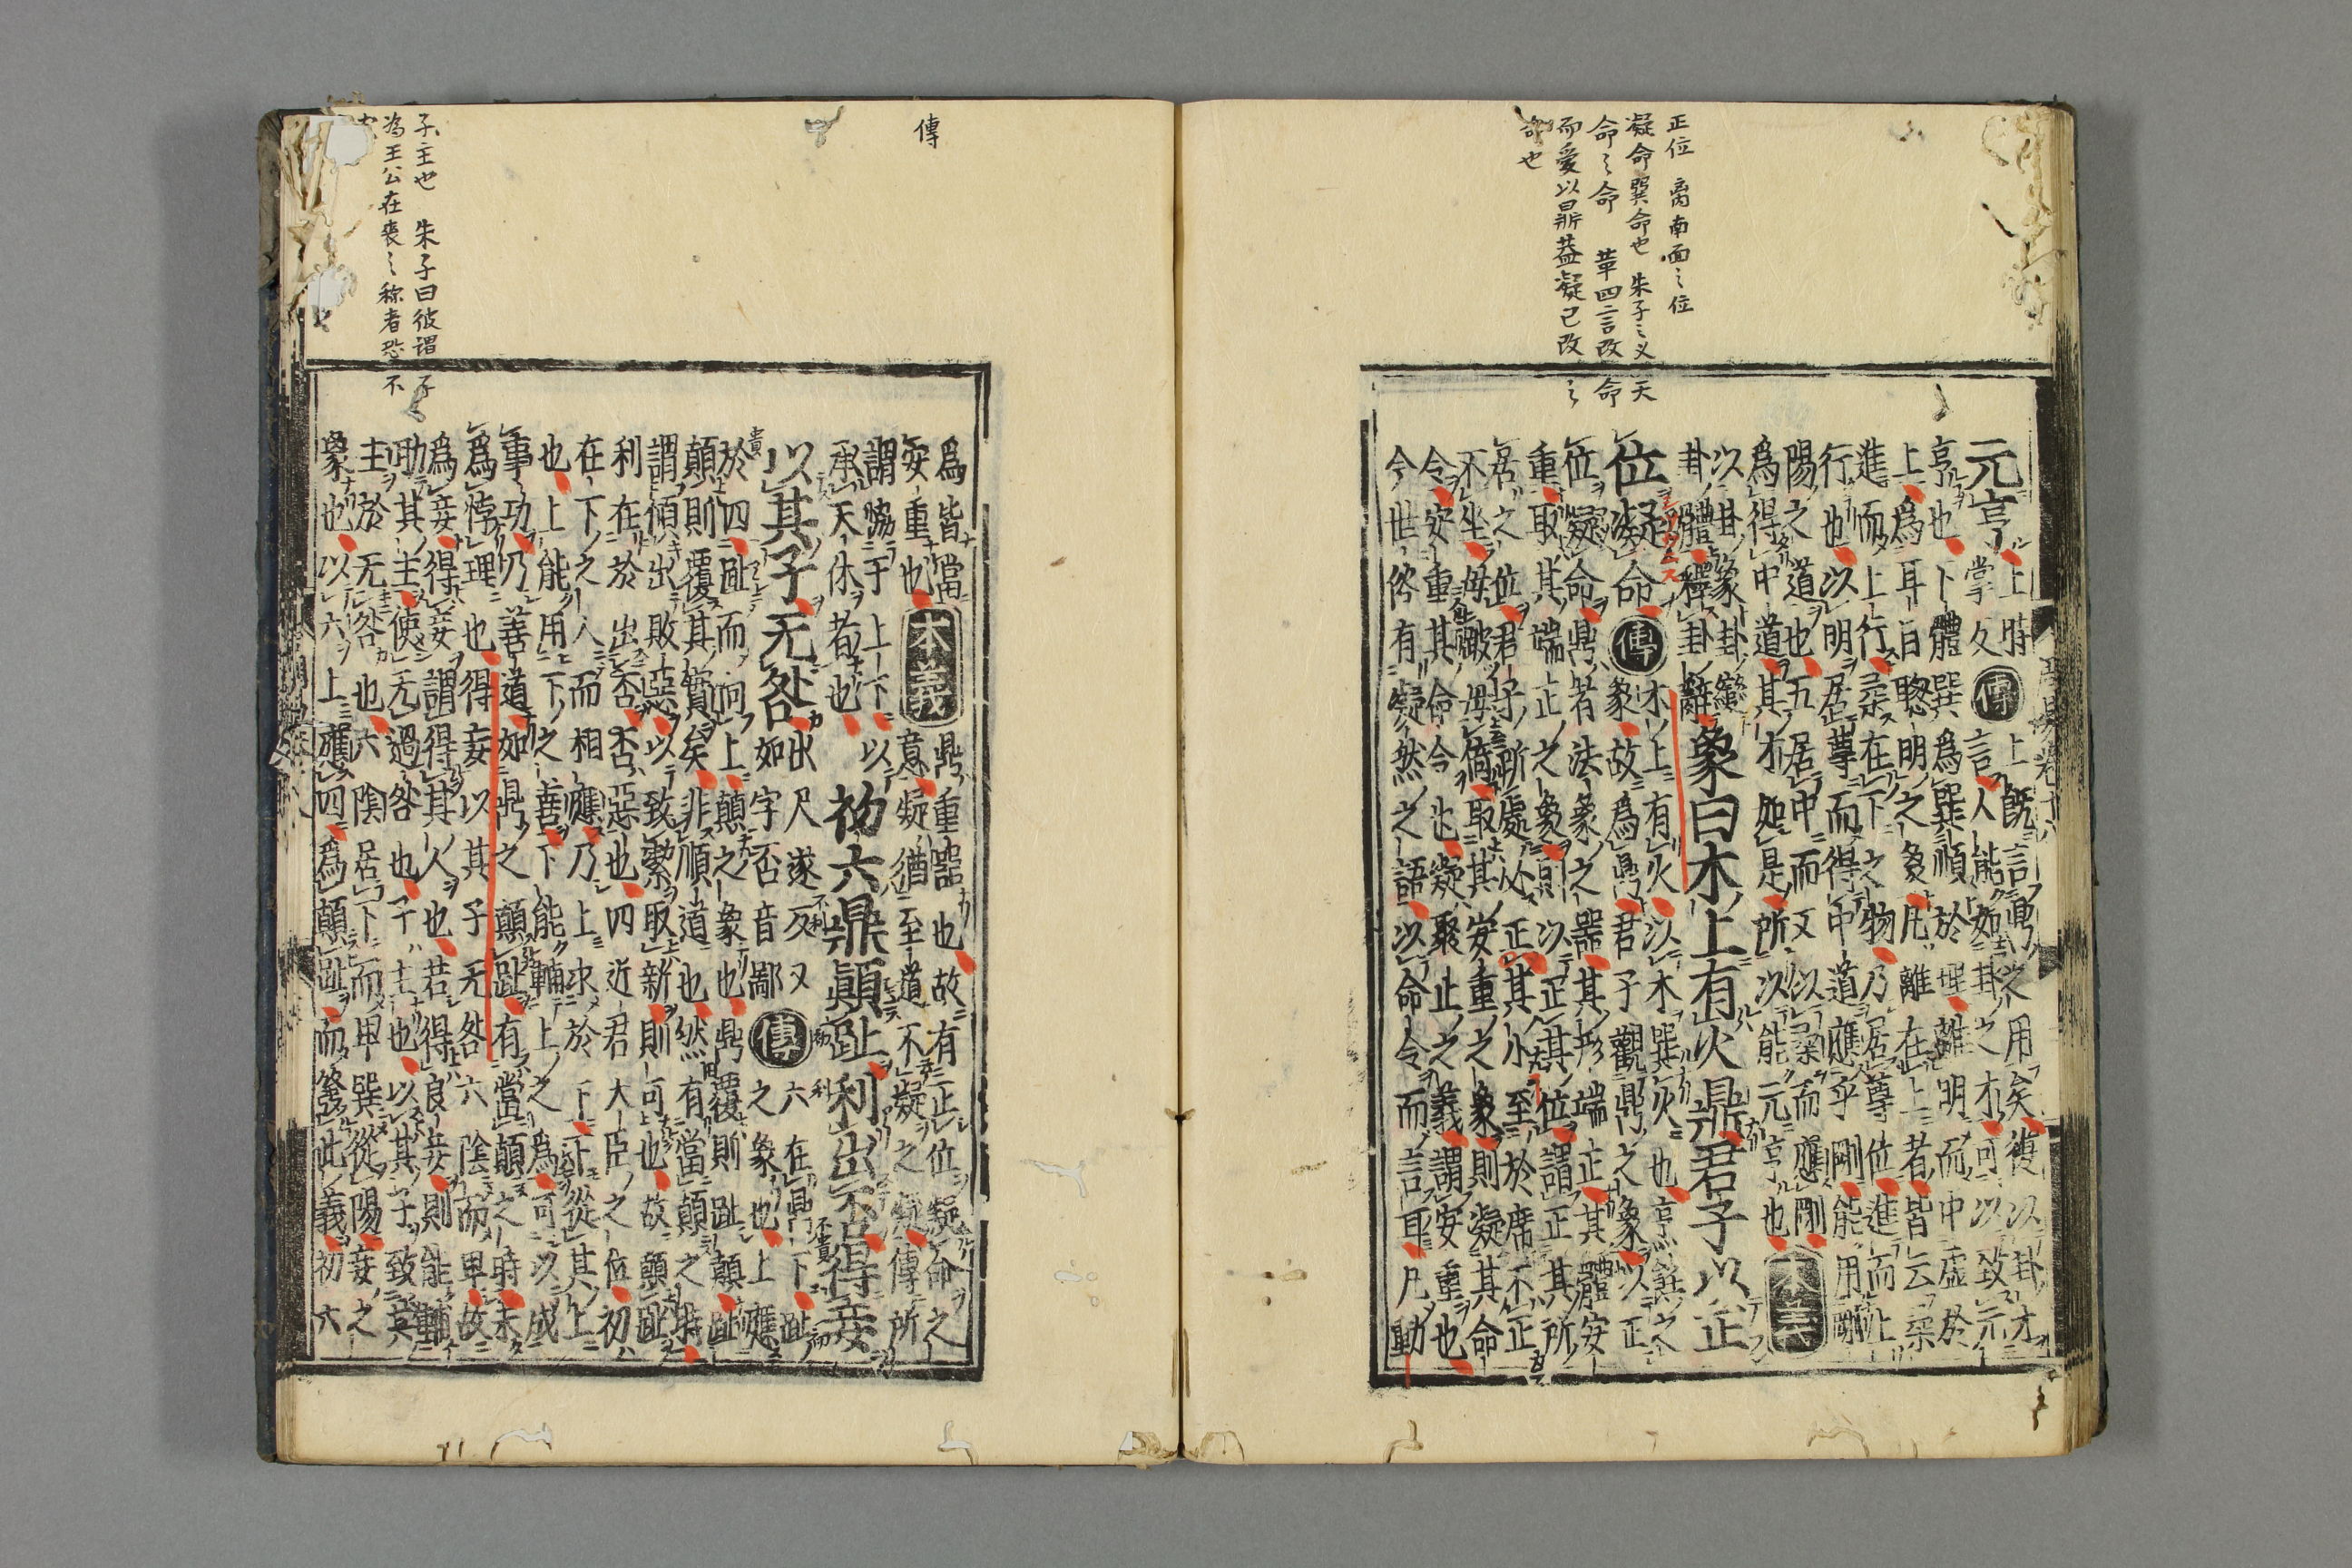 正位 离南面之位
凝命巽命也 朱子之义天
命之命 革四言改命
而爱以鼎盖凝已改之
命也
元亨
上時
掌反
傳
上既言鼎之用矣復以卦才
言人能如卦之才可以致元
亨也下體巽為巽順於理離明而中虛於
上為耳目聰明之象凡離在上者皆云柔
進而上行柔在下之物乃居尊位進而上
行也以明居尊而得中道應乎剛能用剛
陽之道也五居中而又以柔而應剛
為得中道其才如是所以能元亨也
本義
以卦象卦變
卦體釋卦辭
象曰木上有火鼎君子以正
位凝命
傳
木上有火以木巽火也亨飪之
象故為鼎君子觀鼎之象以正
位凝命鼎者法象之器其形端正其體安
重取其端正之象則以正其位謂正其所
居之位君子所處必正其小至於席不正
不坐毋跛毋倚取其安重之象則凝其命
令安重其命令也凝聚止之義謂安重也
今世俗有凝然之語以命令而言耳凡動
傳
子主也 朱子曰彼謂子
為王公在喪之称者恐不
為皆當
安重也
本義
鼎重器也故有正位凝命之
意凝猶至道不凝之凝傳所
謂協于上下以
承天休者也
初六鼎顛趾利出否得妾
以其子无咎
出尺遂反又
如字否音鄙
傳
六在鼎下趾
之象也上應
於四趾而向上顛之象也鼎覆則趾顛趾
顛則覆其實矣非順道也然有當顛之時
謂傾出敗惡以致潔取新則可也故顛趾
利在於出否否惡也四近君大臣之位初
在下之人而相應乃上求於下下從其上
也上能用下之善下能輔上之為可以成
事功乃善道如鼎之顛趾有當顛之時未
為悖理也得妾以其子无咎六陰而卑故
為妾得妾謂得其人也若得良妾則能輔
助其主使无過咎也子主也以其子致其
主於无咎也六陰居下而卑巽從陽妾之
象也以六上應四為顛趾而發此義初六